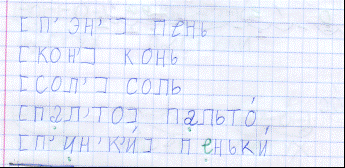 [п' эн'] пень
[кон'] конь
[сол'] соль
[пал'то] пальто́
[п'ин'к'и́] пеньки́